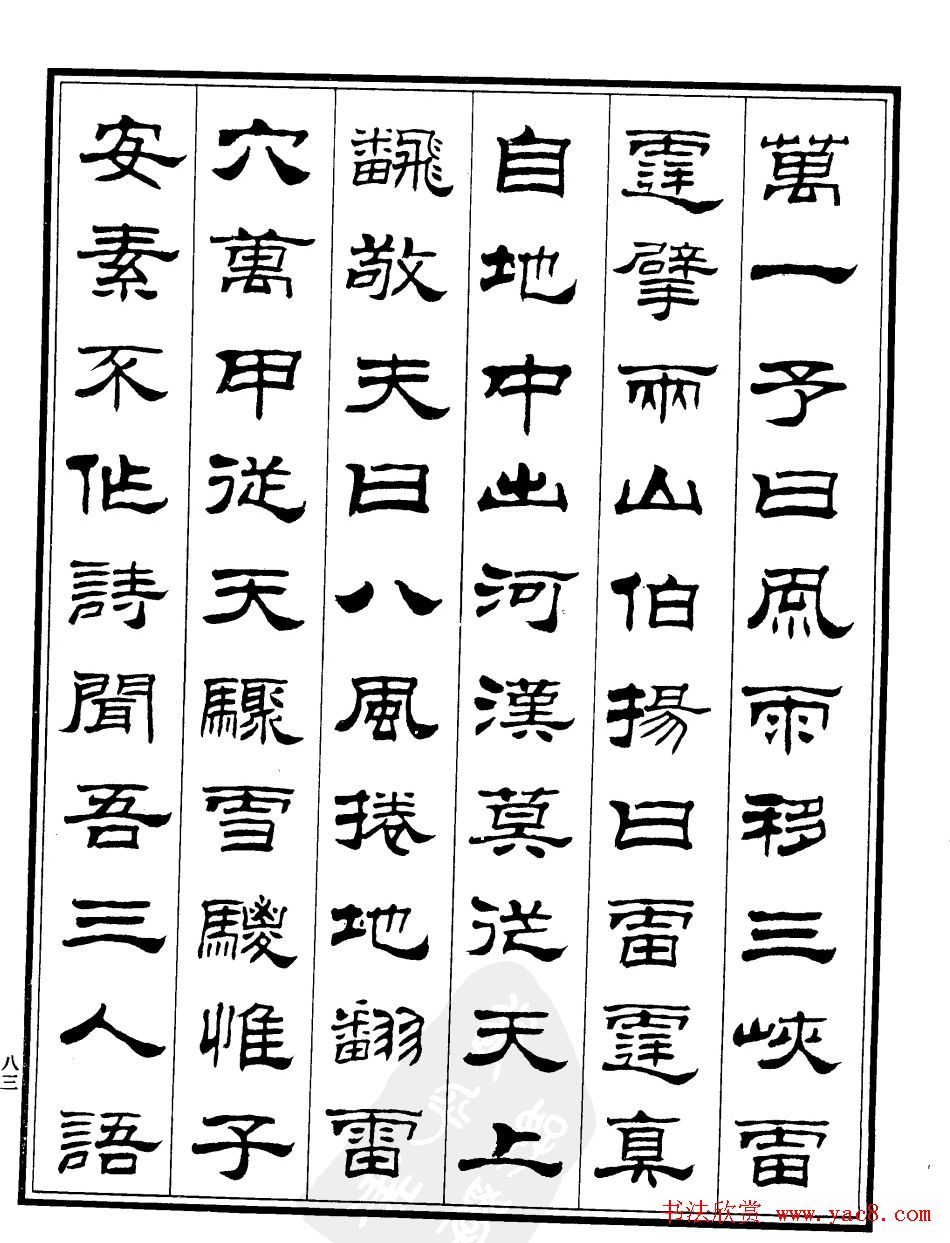 萬一予曰風雨移三峽雷
霆擘兩山伯揚曰雷霆真
自地中出河漢莫從天上
飜敬夫曰八風捲地翻雷
穴萬甲從天驟雪騣惟子
安素不作詩聞吾三人語
八三
书法欣赏 www.yac8.com